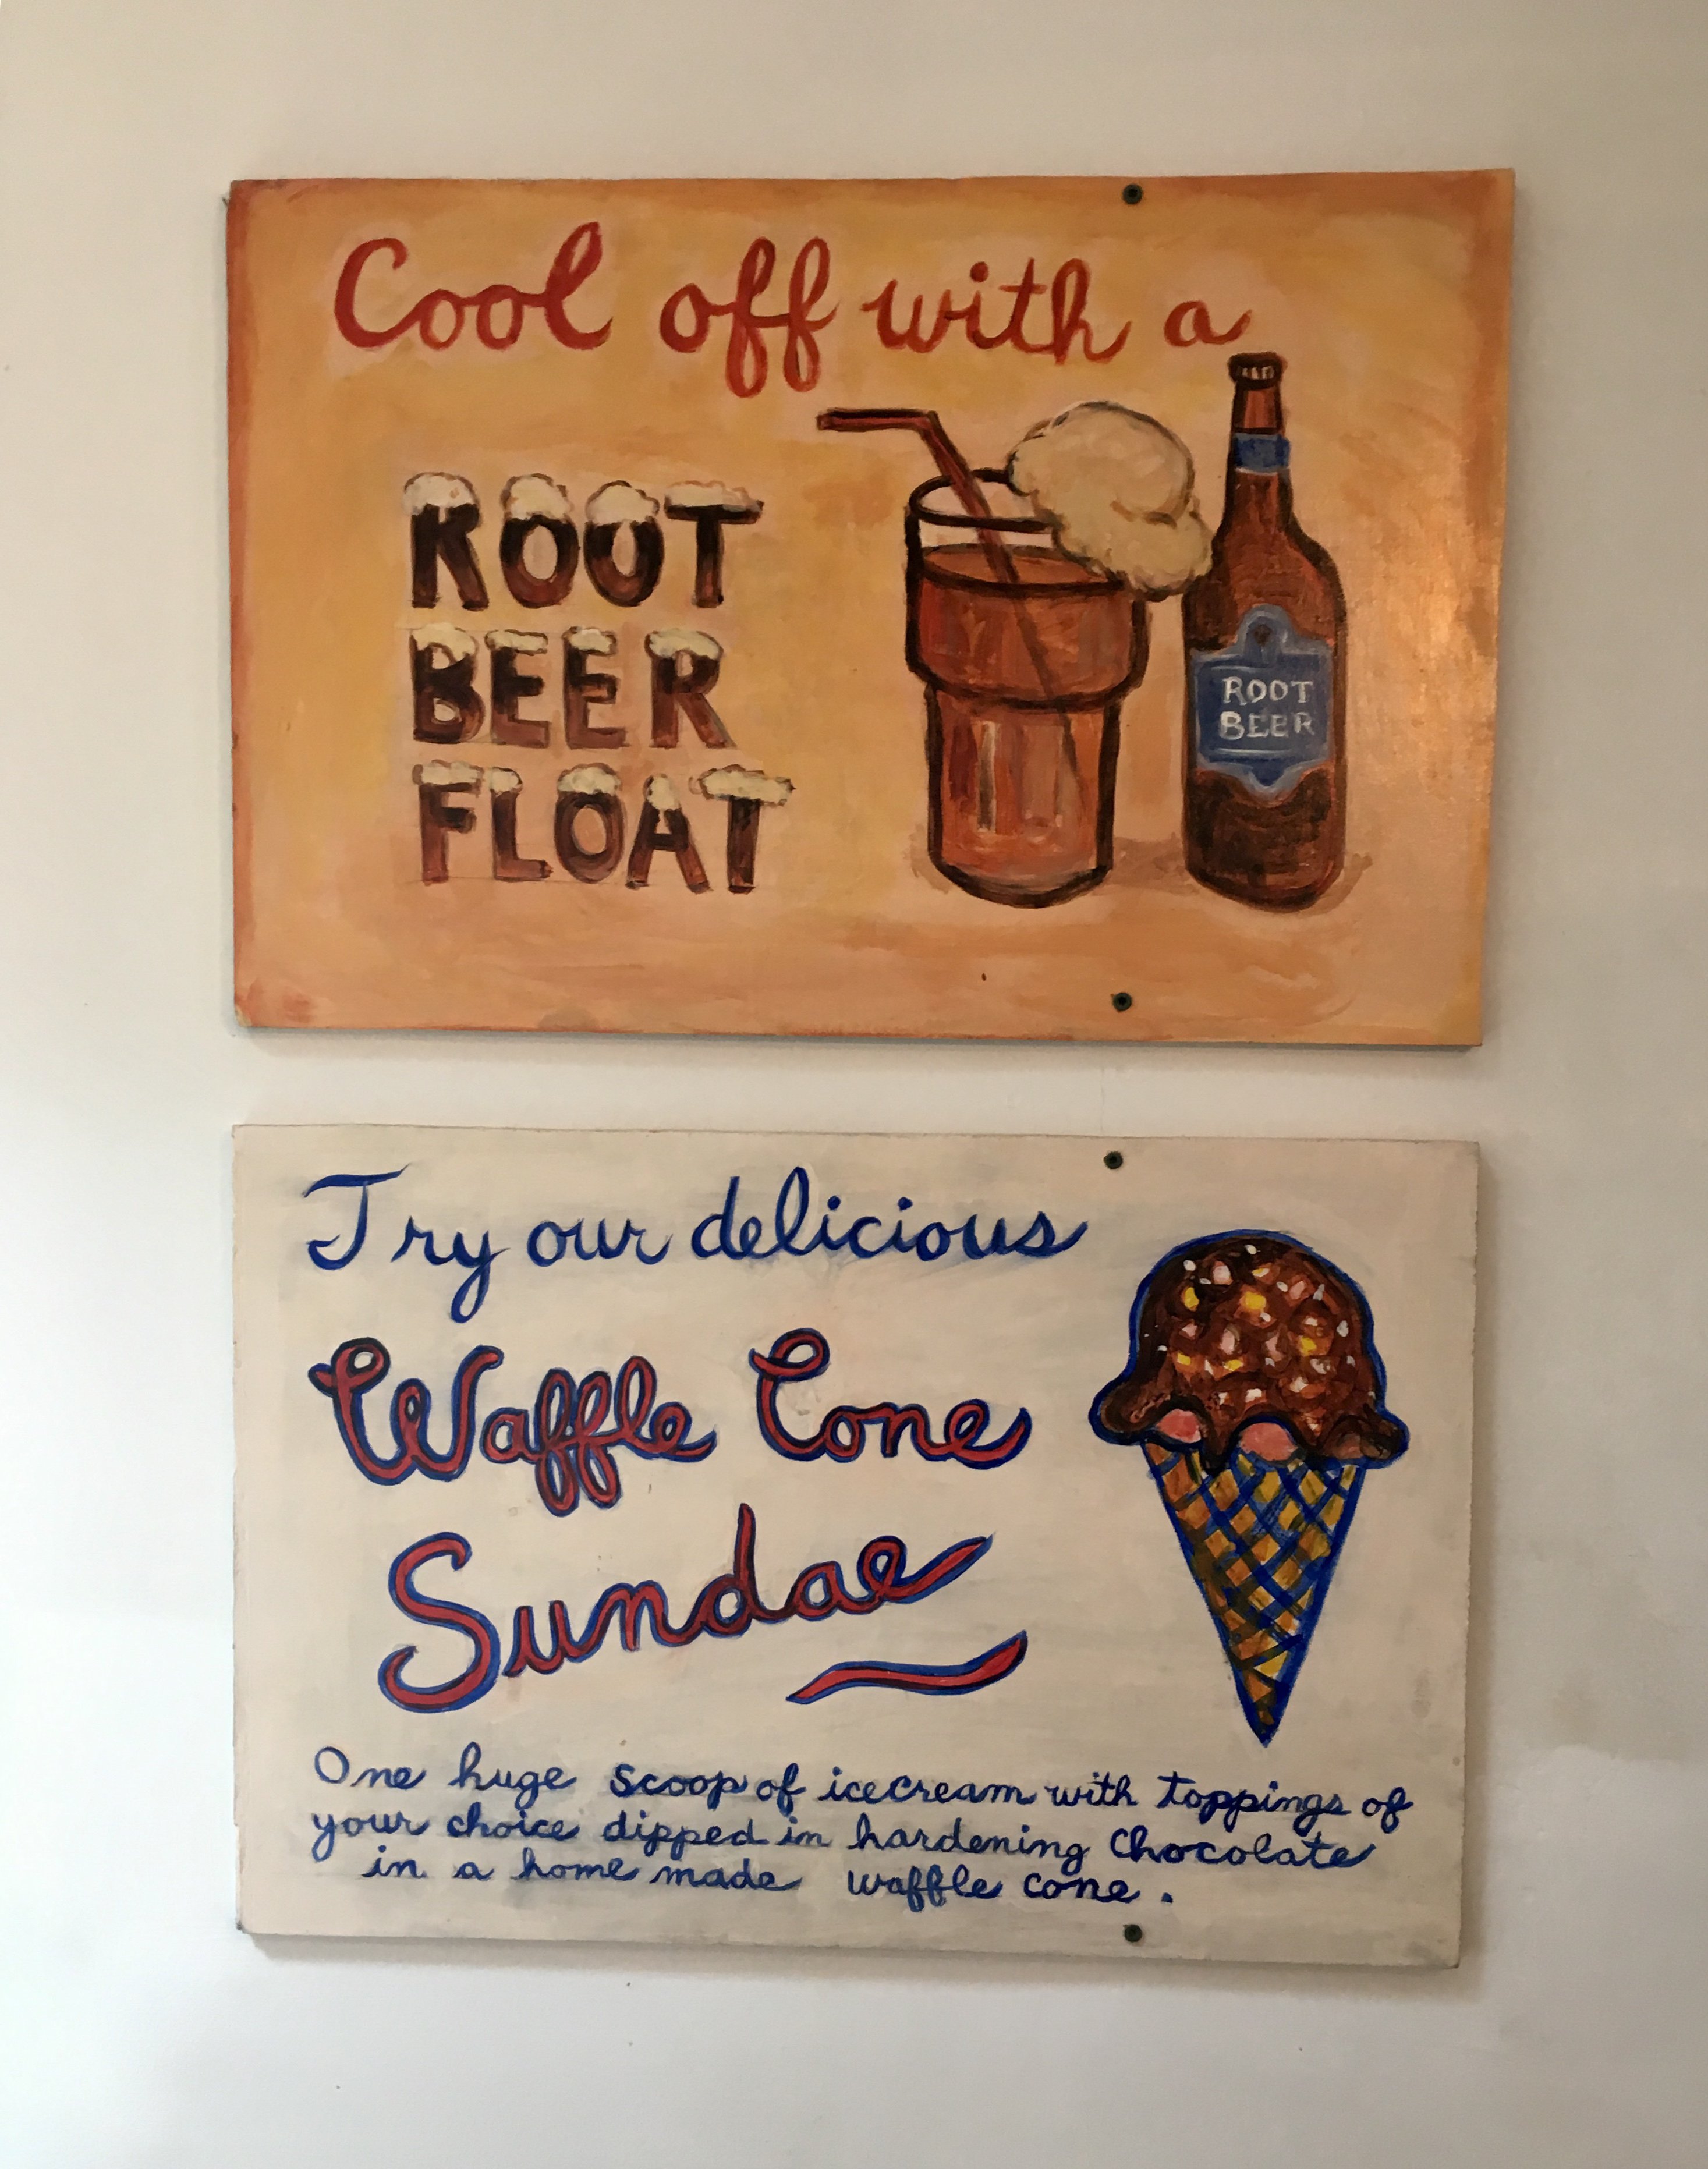 Cool off with a
ROOT
BEER
FLOAT
ROOT
BEER
Try our delicious
Waffle Cone
Sundae
One huge scoop of icecream with toppings of
your choice dipped in hardening Chocolate
in a home made waffle cone.